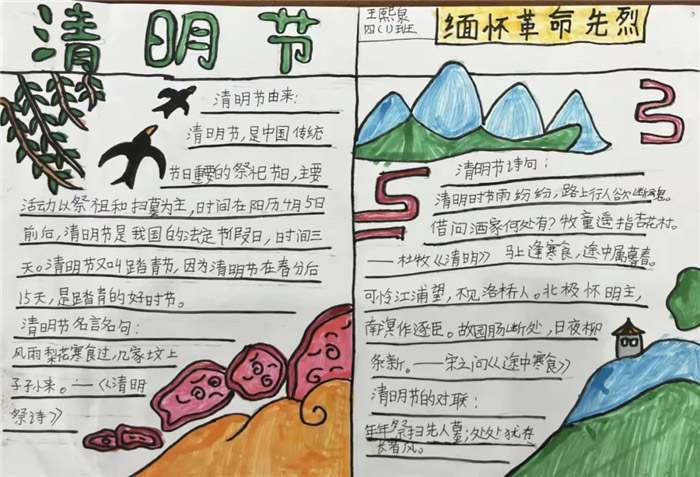 清明节
清明节由来:
清明节,是中国传统
节日重要的祭祀节日,主要
活动以祭祖和扫墓为主,时间在阳历4月5日
前后,清明节是我国的法定节假日,时间三
天。清明节又叫踏青节,因为清明节在春分后
15天,是踏青的好时节。
清明节名言名句:
风雨梨花寒食过,几家坟上
子孙来。——《清明
祭诗》
王熙泉
四(1)班
缅怀革命先烈
清明节诗句:
清明时节雨纷纷,路上行人欲断魂。
借问酒家何处有?牧童遥指杏花村。
——杜牧《清明》 马上逢寒食,途中属暮春。
可怜江浦望,不见洛桥人。北极怀明主,
南溟作逐臣。故园肠断处,日夜柳
条新。——宋之问《途中寒食》
清明节的对联:
年年祭扫先人墓;处处犹存
长者风。